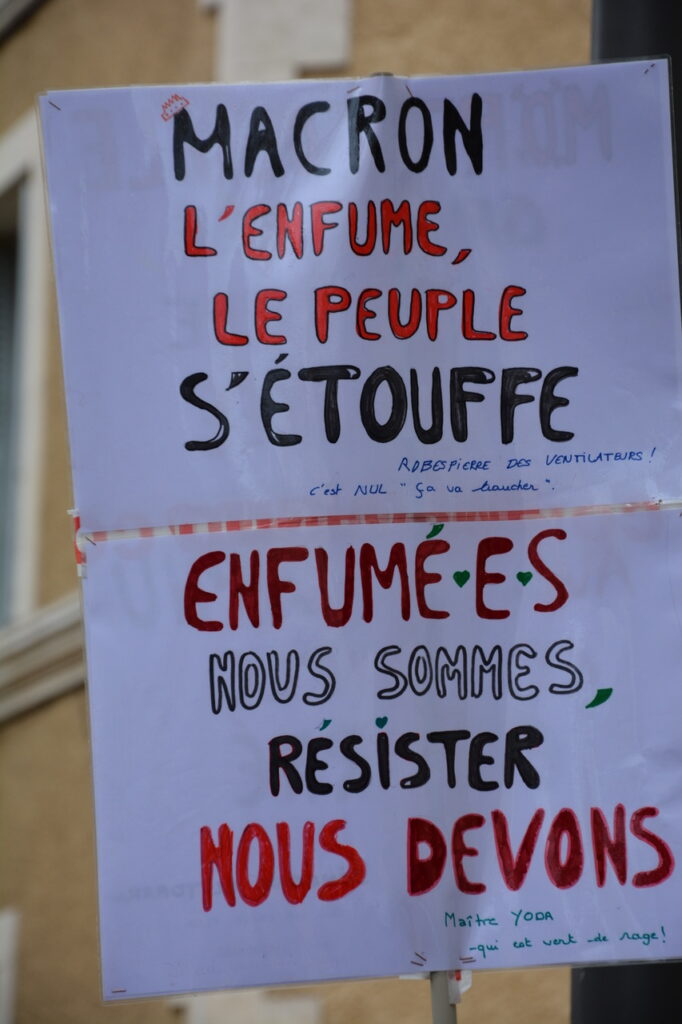 MACRON
L'ENFUME,
LE PEUPLE
S'ÉTOUFFE
ROBESPIERRE DES VENTILATEURS !
c'est NUL "Ça va trancher".
ENFUMÉ·E·S
NOUS SOMMES,
RÉSISTER
NOUS DEVONS
Maître YODA
-qui est vert de rage!